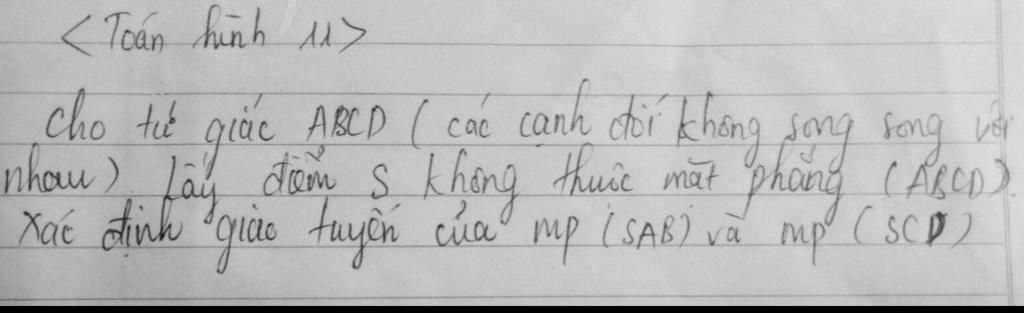 <Toán hình 11>
Cho tứ giác ABCD (các cạnh đối không song song với
nhau). Lấy điểm S không thuộc mặt phẳng (ABCD).
Xác định giao tuyến của mp (SAB) và mp (SCD)